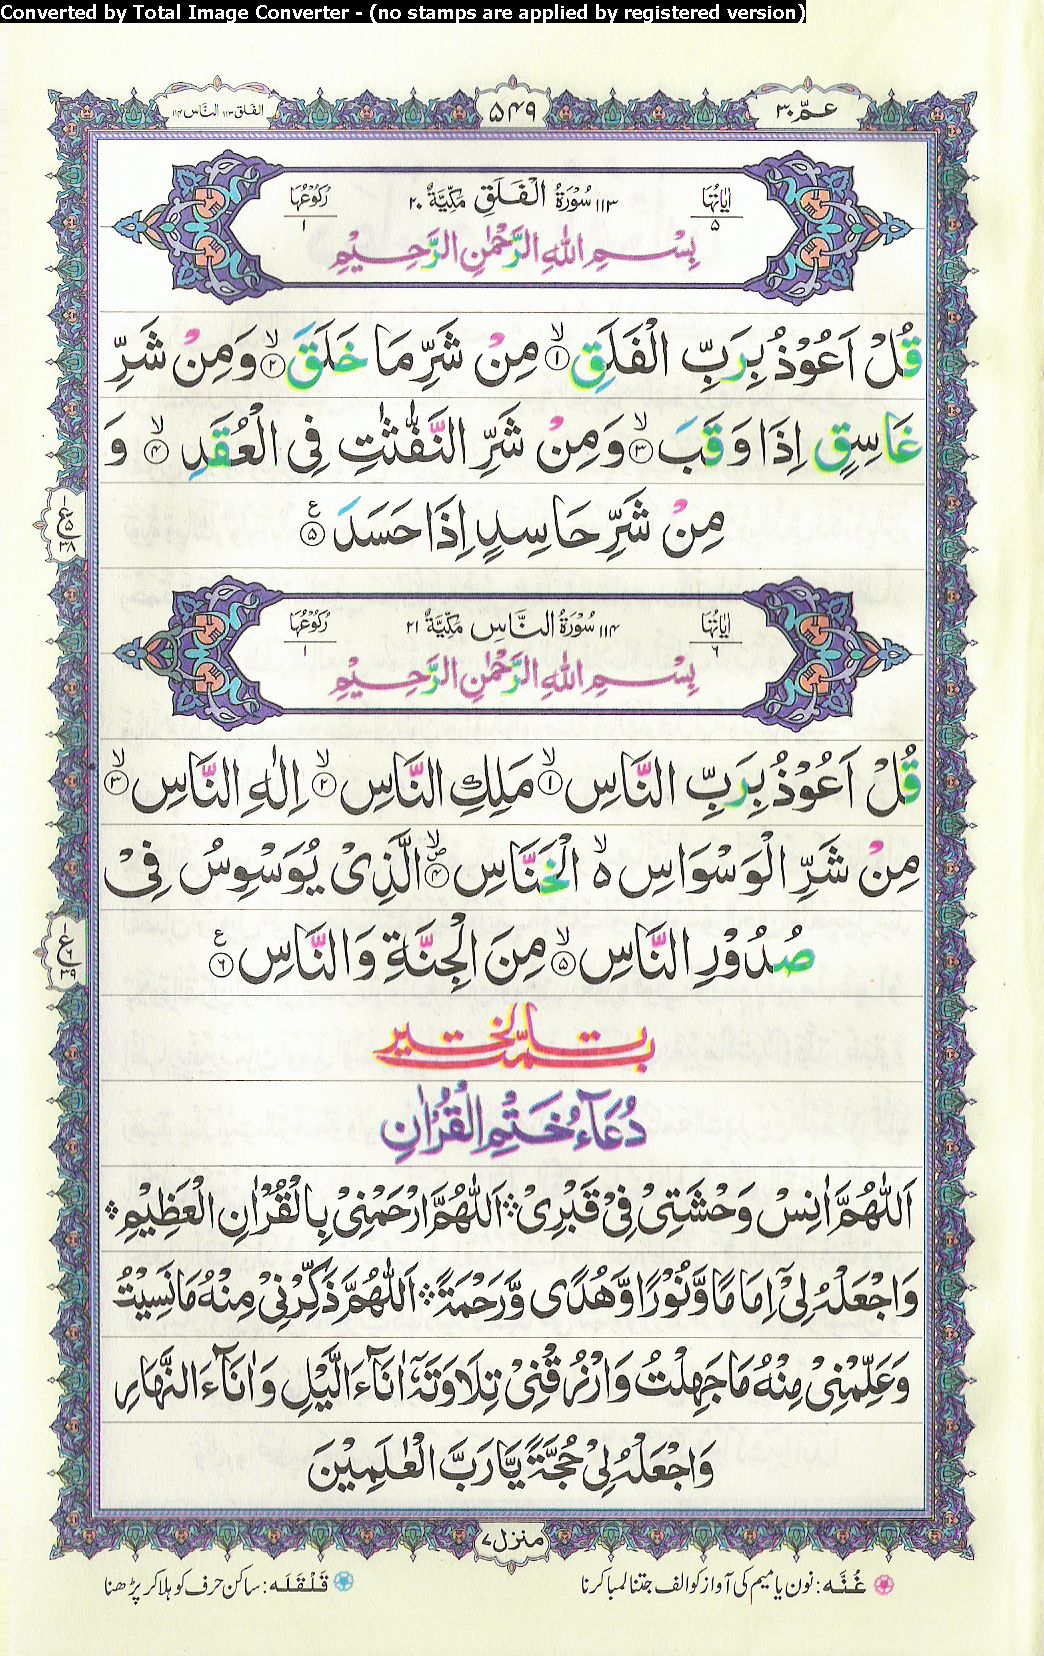 Converted by Total Image Converter - (no stamps are applied by registered version)
عـمّ ٣٠
٥٤٩
الفلق ١١٣ النّاس ١١٤
اٰیَاتُهَا ٥
١١٣ سُوْرَةُ الْفَلَقِ مَكِّيَّةٌ ٢٠
رُكُوْعُهَا ١
بِسْمِ اللّٰهِ الرَّحْمٰنِ الرَّحِيْمِ
قُلْ اَعُوْذُ بِرَبِّ الْفَلَقِ ۙ﴿۱﴾ مِنْ شَرِّ مَا خَلَقَ ۙ﴿۲﴾ وَمِنْ شَرِّ
غَاسِقٍ اِذَا وَقَبَ ۙ﴿۳﴾ وَمِنْ شَرِّ النَّفّٰثٰتِ فِى الْعُقَدِ ۙ﴿۴﴾ وَ
مِنْ شَرِّ حَاسِدٍ اِذَا حَسَدَ ﴿۵﴾ ع
١
ع ٥
٣٨
اٰیَاتُهَا ٦
١١٤ سُوْرَةُ النَّاسِ مَكِّيَّةٌ ٢١
رُكُوْعُهَا ١
بِسْمِ اللّٰهِ الرَّحْمٰنِ الرَّحِيْمِ
قُلْ اَعُوْذُ بِرَبِّ النَّاسِ ۙ﴿۱﴾ مَلِكِ النَّاسِ ۙ﴿۲﴾ اِلٰهِ النَّاسِ ۙ﴿۳﴾
مِنْ شَرِّ الْوَسْوَاسِ ۵ الْخَنَّاسِ ۙ﴿۴﴾ ص الَّذِىْ يُوَسْوِسُ فِىْ
صُدُوْرِ النَّاسِ ۙ﴿۵﴾ مِنَ الْجِنَّةِ وَالنَّاسِ ﴿۶﴾ ع
١
ع ٦
٣٩
تمّت بالخیر
دُعَآءُ خَتْمِ الْقُرْاٰنِ
اَللّٰهُمَّ اٰنِسْ وَحْشَتِىْ فِىْ قَبْرِىْ ۞ اَللّٰهُمَّ ارْحَمْنِىْ بِالْقُرْاٰنِ الْعَظِيْمِ ۞
وَاجْعَلْهُ لِىْٓ اِمَامًا وَّنُوْرًا وَّهُدًى وَّرَحْمَةً ۞ اَللّٰهُمَّ ذَكِّرْنِىْ مِنْهُ مَا نَسِيْتُ
وَعَلِّمْنِىْ مِنْهُ مَا جَهِلْتُ وَارْزُقْنِىْ تِلَاوَتَهٗٓ اٰنَآءَ الَّيْلِ وَاٰنَآءَ النَّهَارِ
وَاجْعَلْهُ لِىْ حُجَّةً يَّارَبَّ الْعٰلَمِيْنَ
منزل ٧
غُنَّه: نون یا میم کی آواز کو الف جتنا لمبا کرنا
قَلْقَلَه: ساکن حرف کو ہلا کر پڑھنا